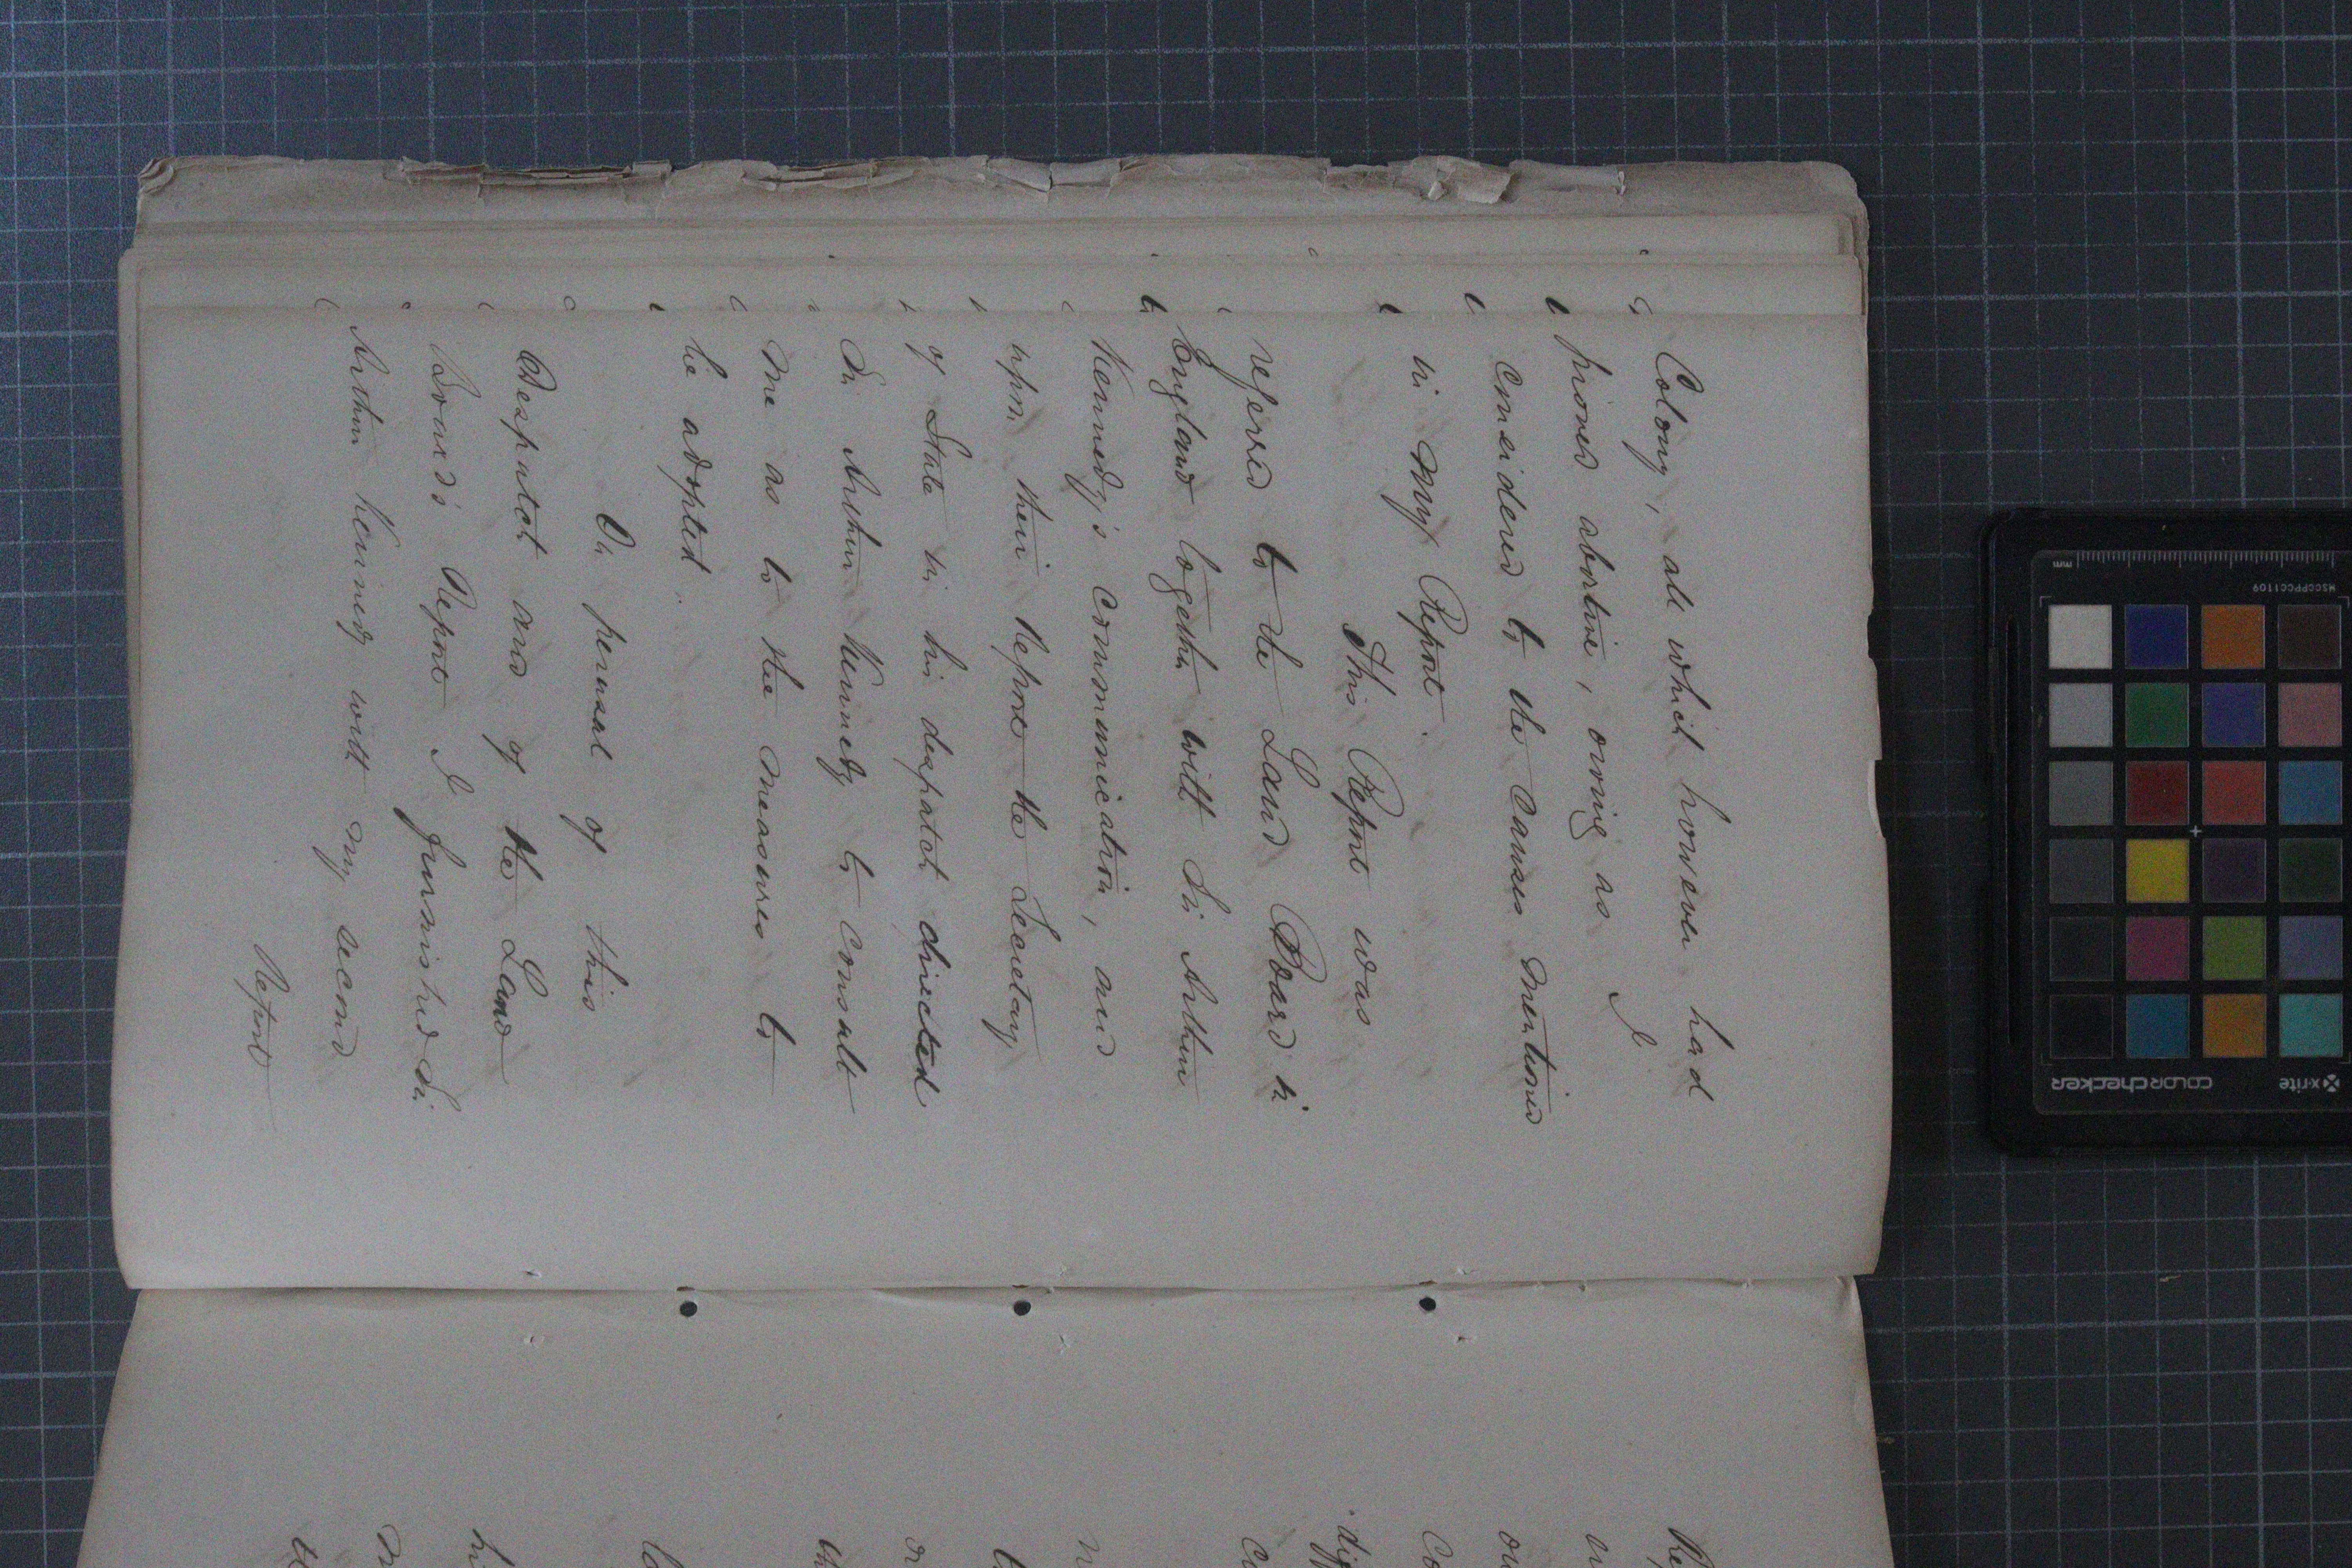 Colony, all which however had
proved abortive, owing as I
considered to the causes mentioned
in my Report.
This Report was
referred to the Land Board in
England together with Sir Arthur
Kennedy's communication, and
upon their Report the Secretary
of State in his despatch directed
Sir Arthur Kennedy to consult
me as to the measures to
be adopted.
On perusal of this
Despatch and of the Land
Board's Report I furnished Sir
Arthur Kennedy with my second
Report